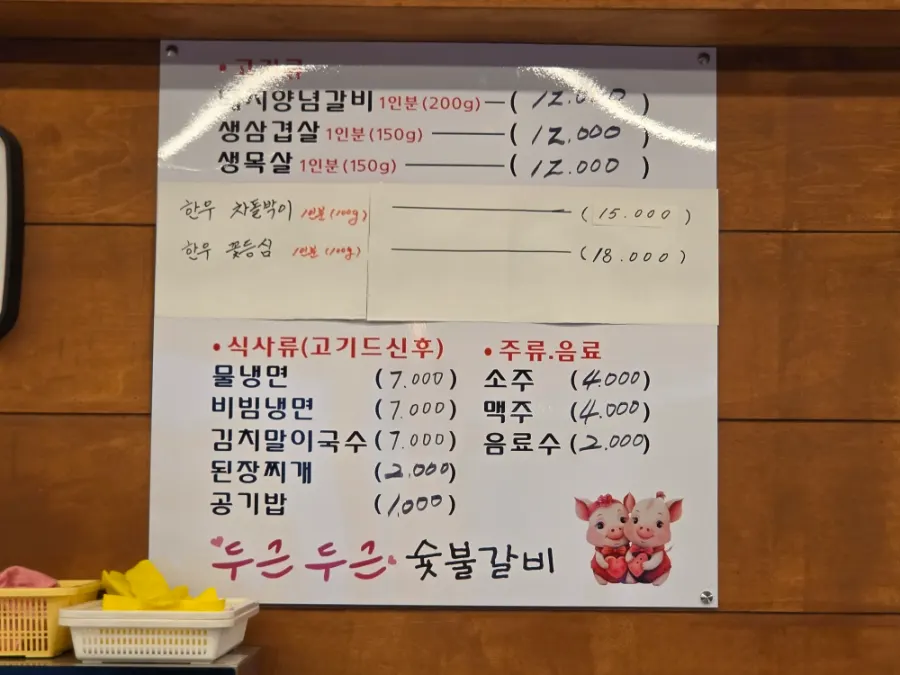 • 고기류
양념갈비 1인분(200g) ( 12.000 )
생삼겹살 1인분(150g) ( 12.000 )
생목살 1인분(150g) ( 12.000 )
한우 차돌박이 1인분(100g) ( 15.000 )
한우 꽃등심 1인분(100g) ( 18.000 )
• 식사류(고기드신후)
물냉면 ( 7.000 )
비빔냉면 ( 7.000 )
김치말이국수 ( 7.000 )
된장찌개 ( 2.000 )
공기밥 ( 1,000 )
• 주류.음료
소주 ( 4.000 )
맥주 ( 4.000 )
음료수 ( 2.000 )
두근두근 숯불갈비